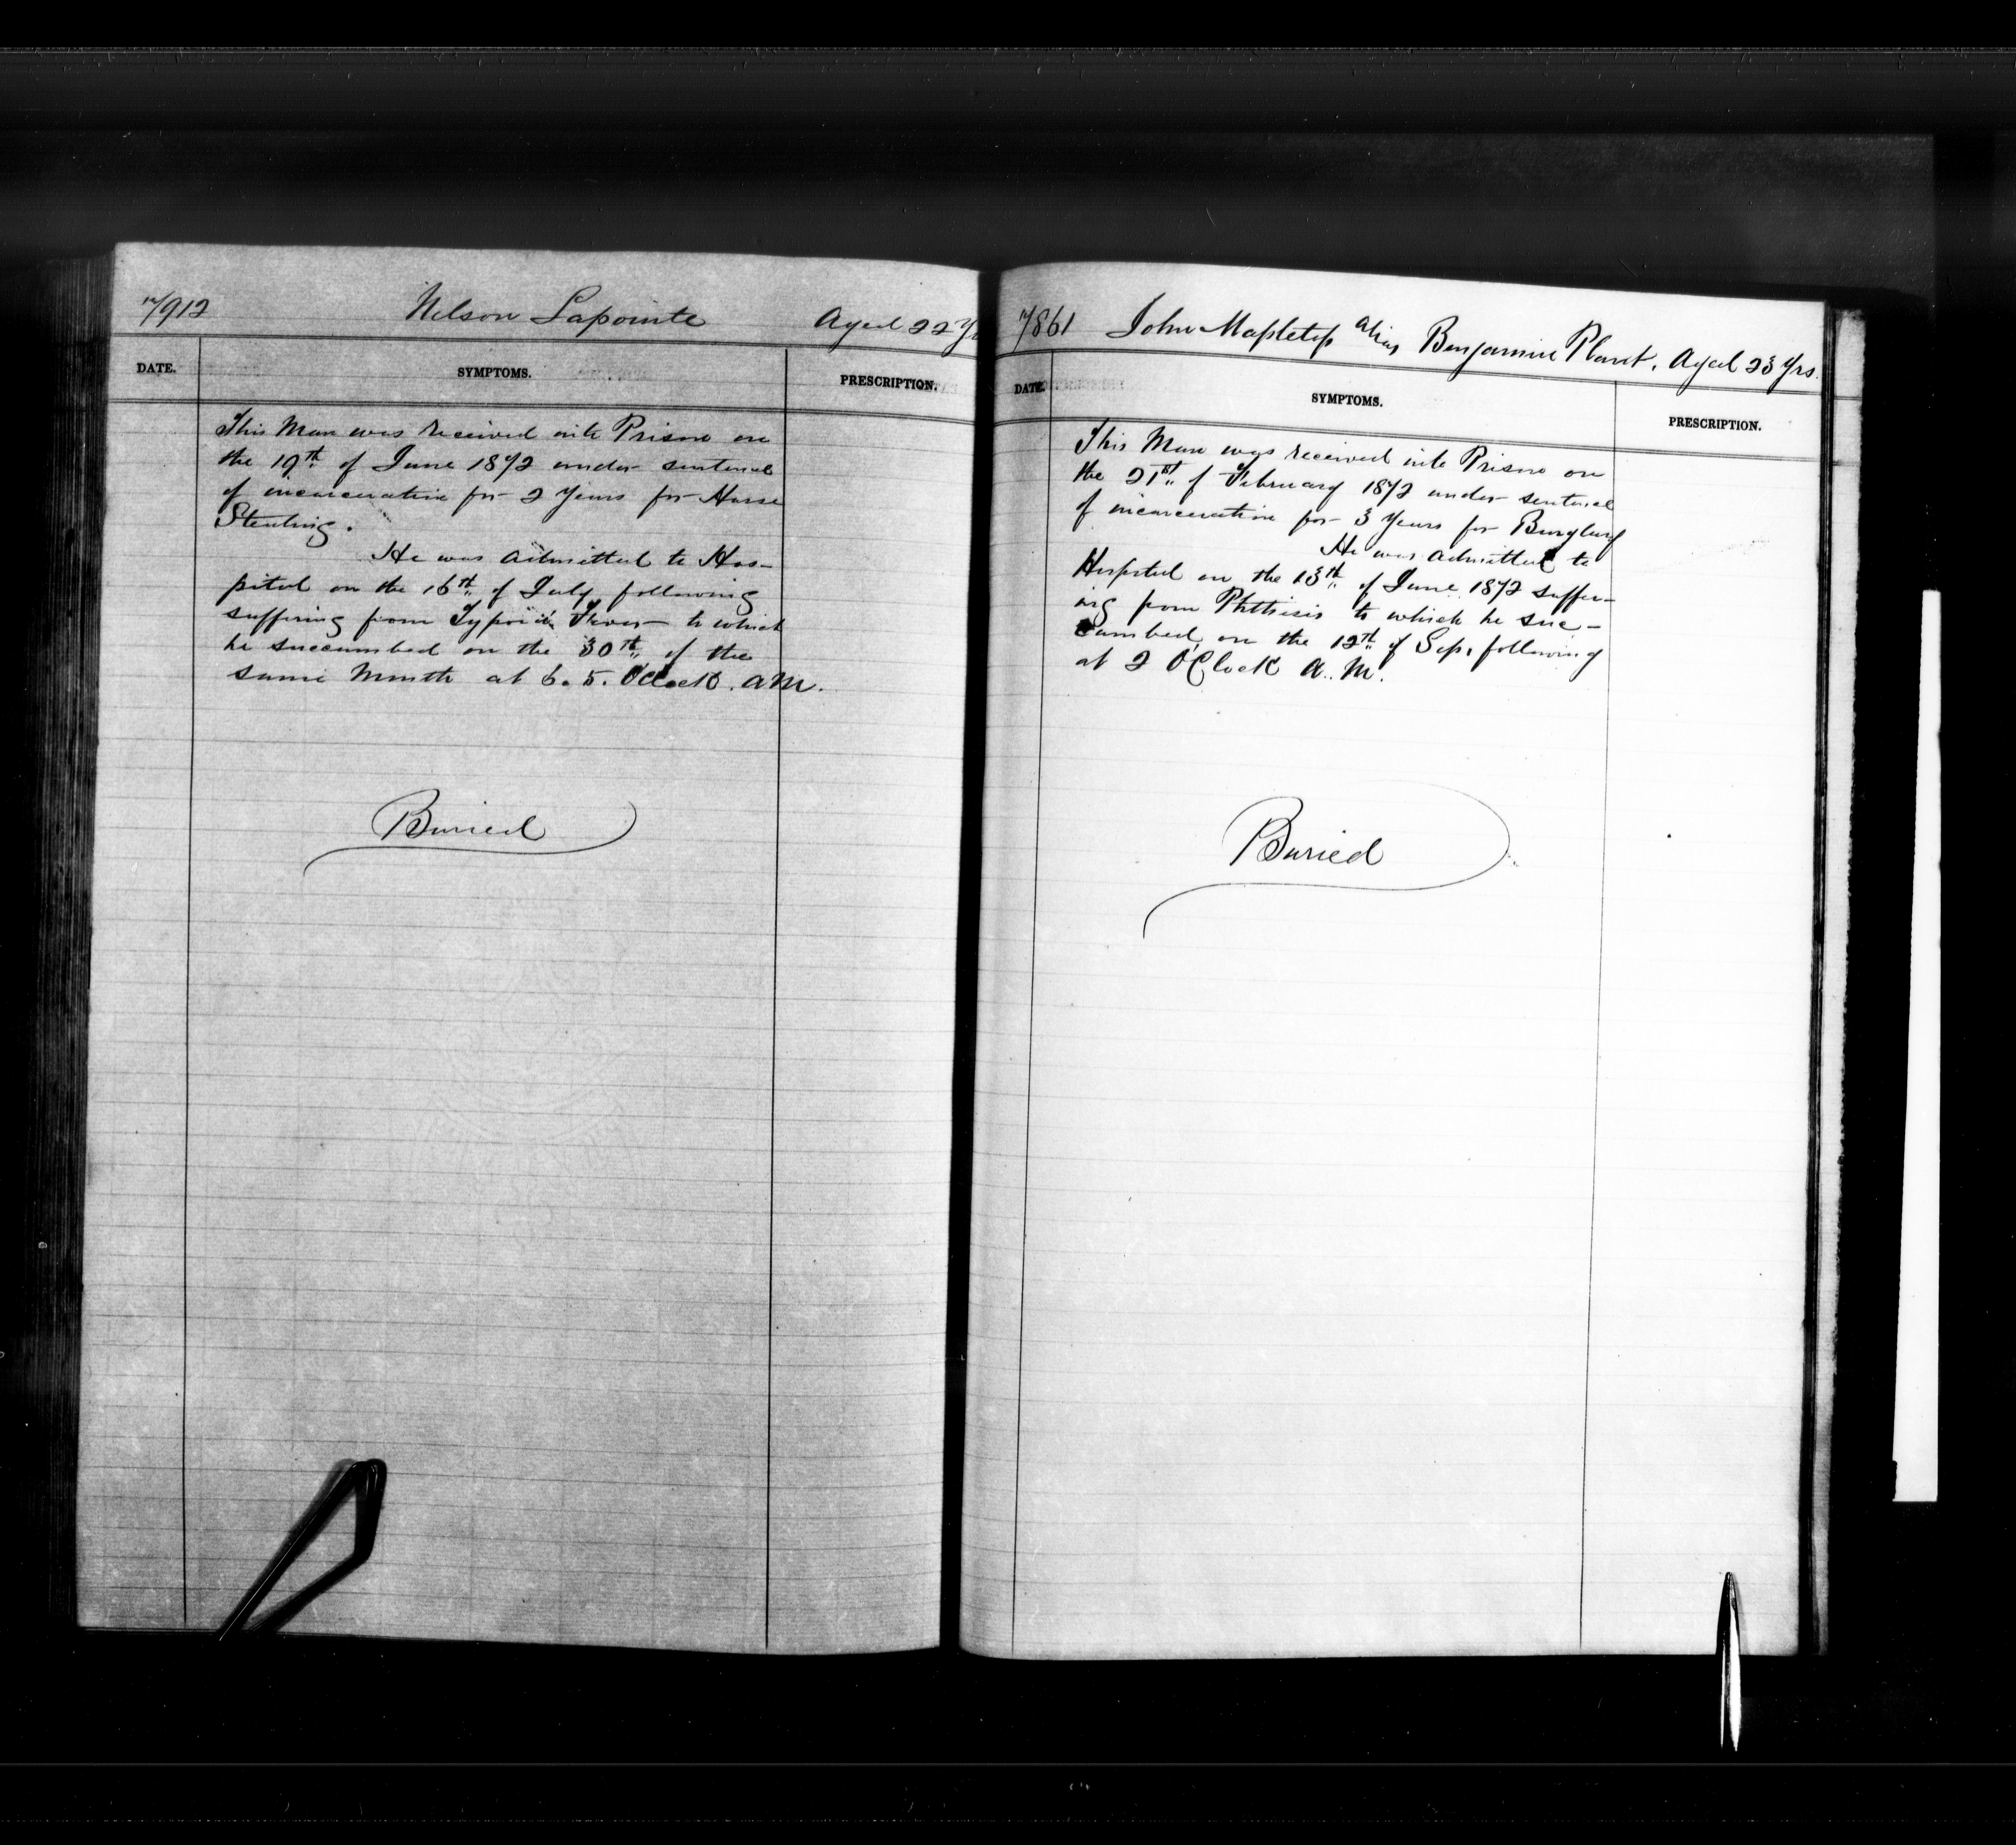 N/912 Nelson Lapointe Aged 22 Yr
DATE. SYMPTOMS. PRESCRIPTION.
This Man was received into Prison on
the 19th of June 1872 under sentence
of incarceration for 2 Years for Horse
Stealing.
He was admitted to Hos-
pital on the 16th of July following
suffering from Typoid Fever to which
he succumbed on the 30th of the
same Month at 6.5. O'Clock. A.M.
Buried
N/861 John Mapletop alias Benjamin Plant. Aged 23 Yrs.
DATE. SYMPTOMS. PRESCRIPTION.
This Man was received into Prison on
the 21st of February 1872 under sentence
of incarceration for 3 Years for Burglary
He was admitted to
Hospital on the 13th of June 1872 suffer-
ing from Phthisis to which he suc-
cumbed on the 12th of Sep. following
at 2 O'Clock A.M.
Buried